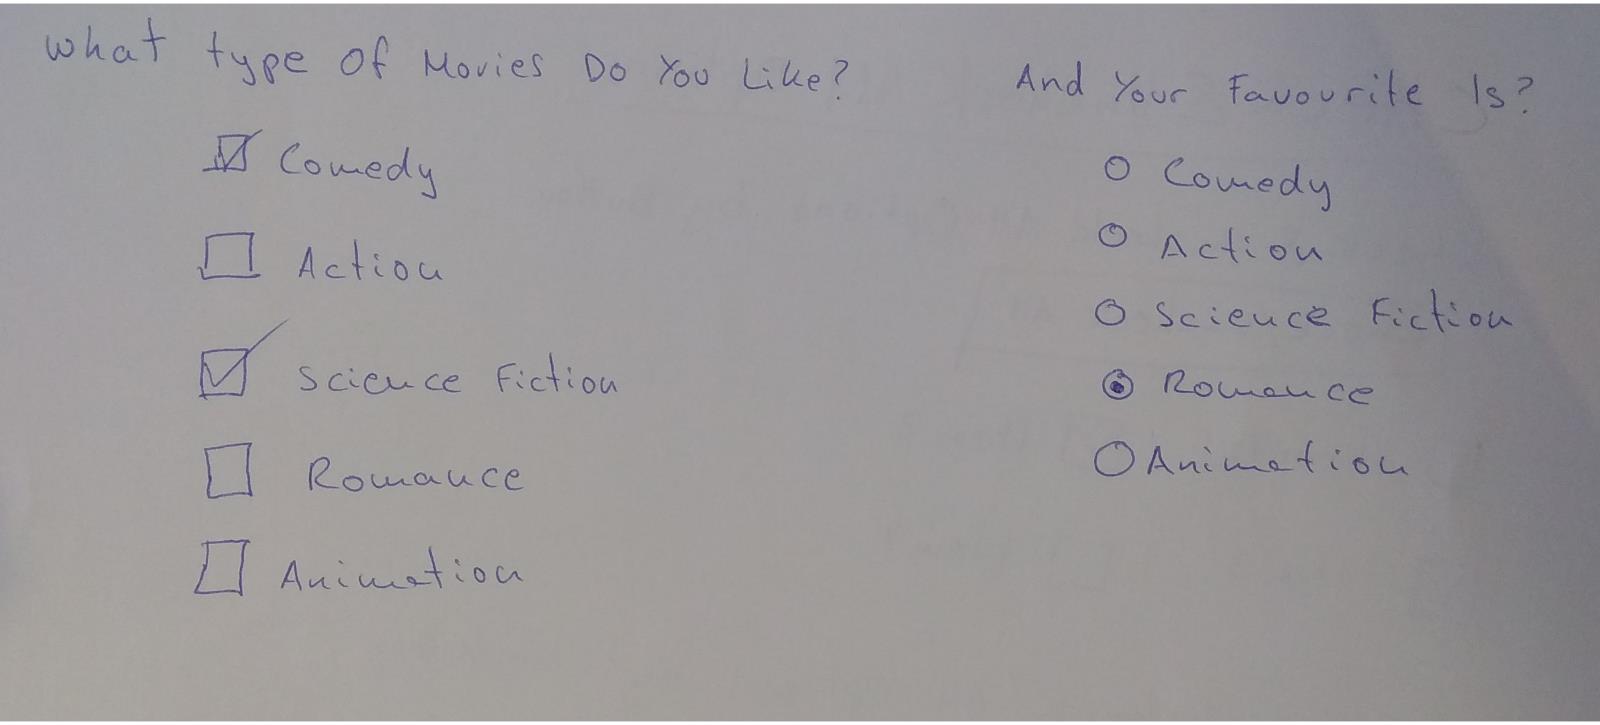 What type Of Movies Do You Like?
Comedy
Action
Science Fiction
Romance
Animation
And Your Favourite Is?
Comedy
Action
Science Fiction
Romance
Animation